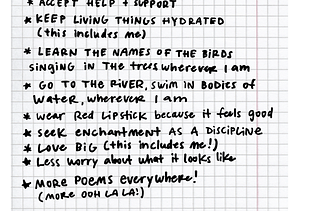 * ACCEPT HELP + SUPPORT
* KEEP LIVING THINGS HYDRATED
(this includes me)
* LEARN THE NAMES OF THE BIRDS
SINGING IN THE trees wherever I am
* GO TO THE RIVER, SWIM IN BODIES of
WATER, wherever I am
* wear Red Lipstick because it feels good
* seek enchantment AS A DISCIPLINE
* LOVE BIG (this includes me!)
* Less worry about what it looks like
* MORE POEMS everywhere!
(MORE OOH LA LA!)